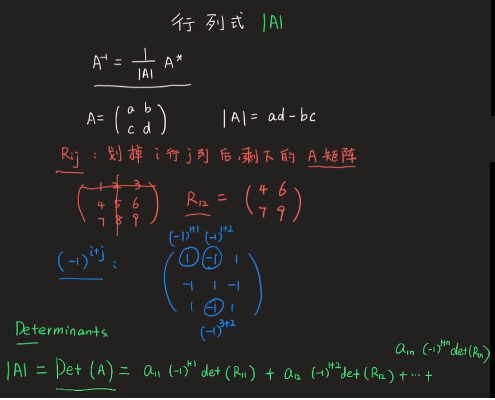 行列式 |A|
A⁻¹ = 1/|A| A*
A = (a b
c d) |A| = ad - bc
Rij : 划掉 i 行 j 列后,剩下的 A 矩阵
(1 2 3
4 5 6
7 8 9) R₁₂ = (4 6
7 9)
(-1)¹⁺¹ (-1)¹⁺²
(-1)ⁱ⁺ʲ : (1 -1 1
-1 1 -1
1 -1 1)
(-1)³⁺²
Determinants
|A| = Det (A) = a₁₁ (-1)¹⁺¹ det (R₁₁) + a₁₂ (-1)¹⁺² det (R₁₂) + ... + a₁ₙ (-1)¹⁺ⁿ det(R₁ₙ)